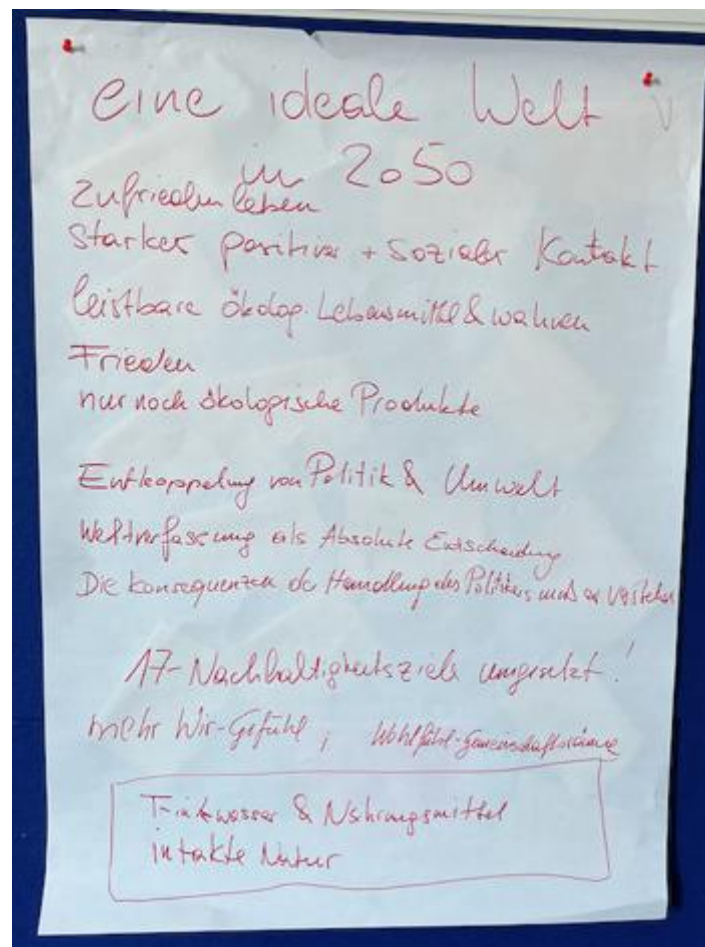 eine ideale Welt
in 2050
zufrieden leben
starker positiver + sozialer Kontakt
leistbare ökolog. Lebensmittel & wahren
Frieden
nur noch ökologische Produkte
Entkoppelung von Politik & Umwelt
Weltverfassung als Absolute Entscheidung
Die Konsequenzen der Handlung des Politikers muss er verstehen
17-Nachhaltigkeitsziele umgesetzt!
mehr Wir-Gefühl, Wohlfühl-Gemeinschaftsräume
Trinkwasser & Nahrungsmittel
intakte Natur